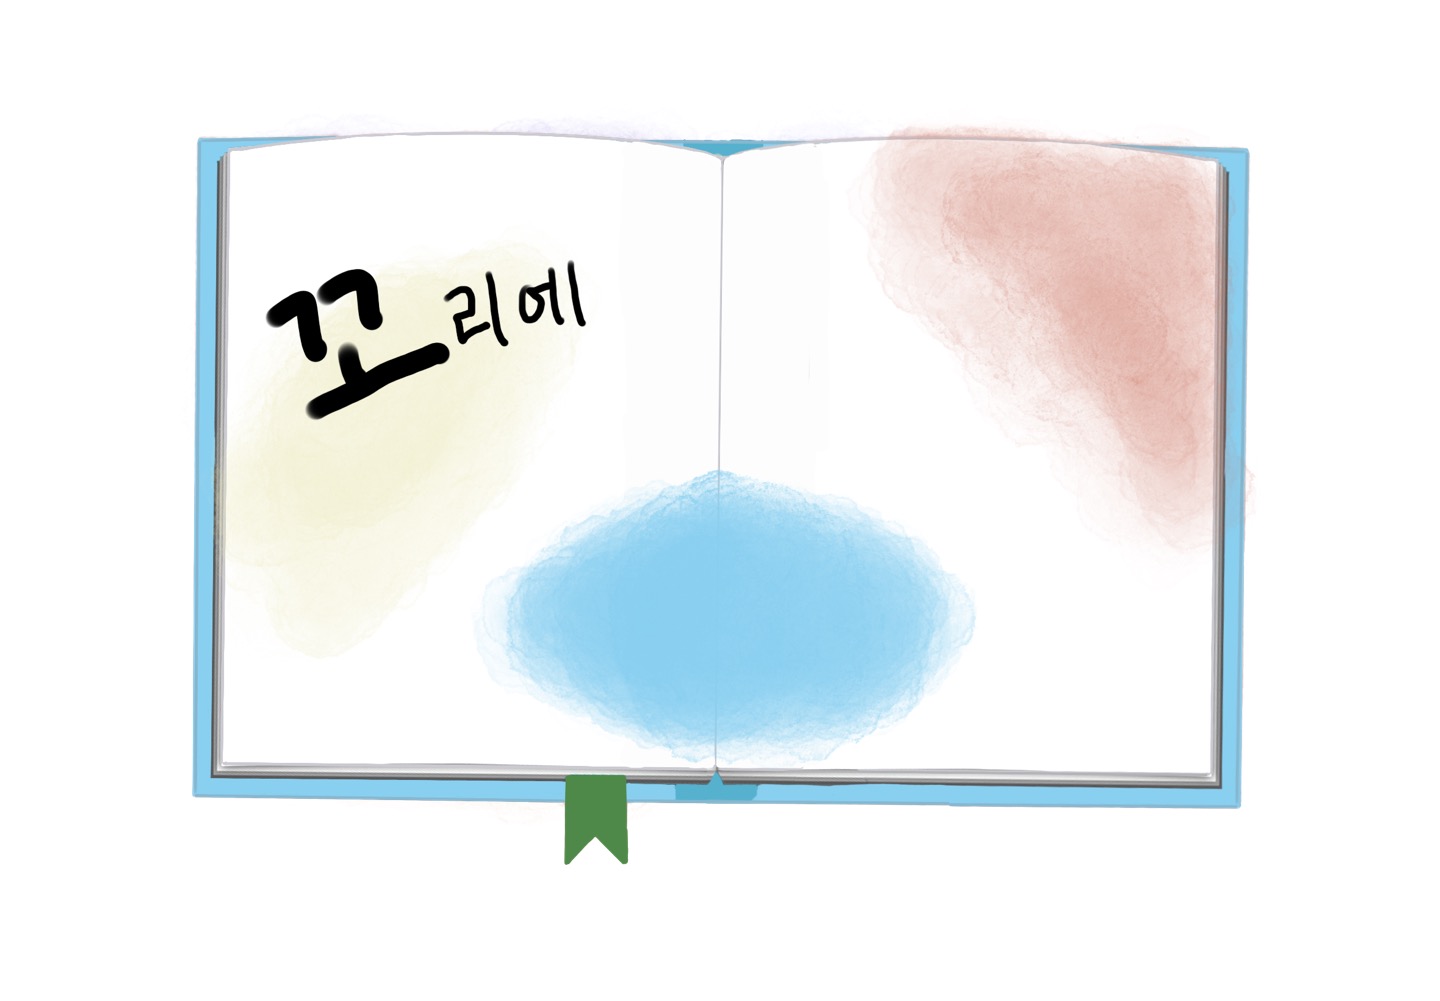 꼬리에